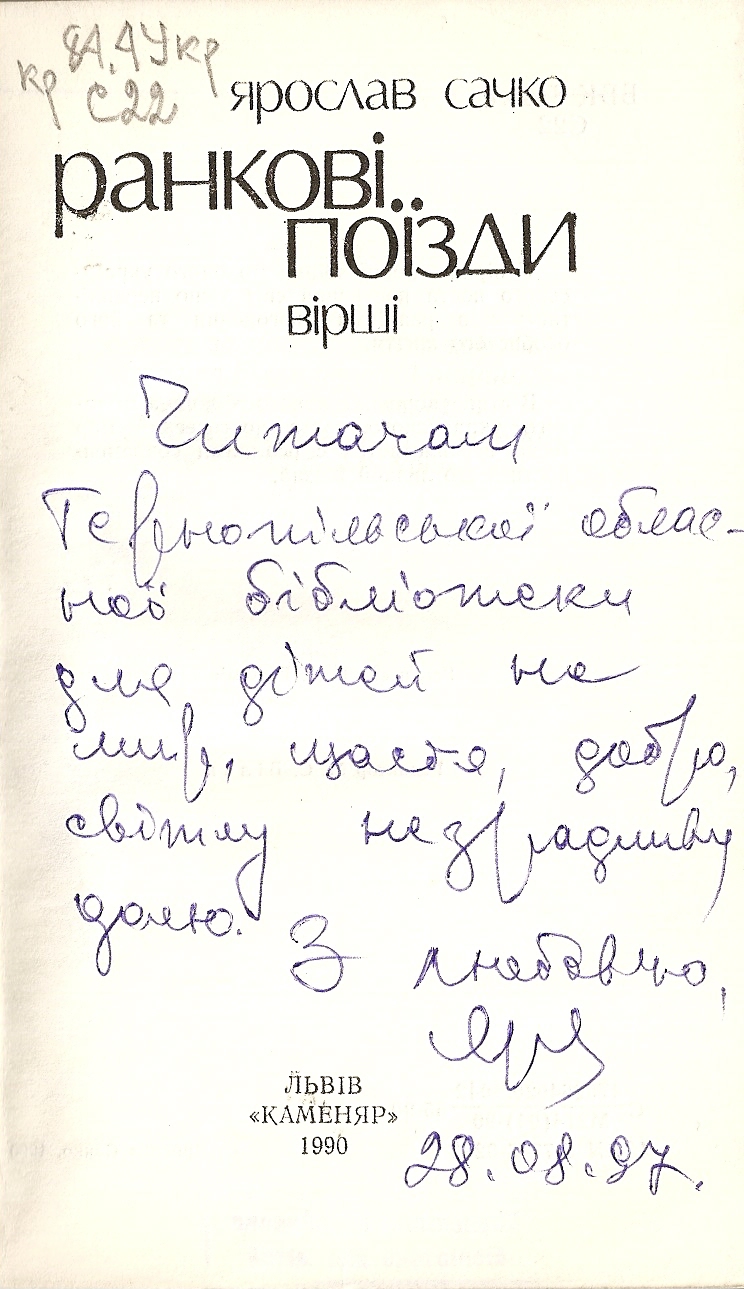 84.4Укр
кр С22
ярослав сачко
ранкові
поїзди
вірші
Читачам
Тернопільської облас-
ної бібліотеки
для дітей на
мир, щастя, добро,
світлу незрадливу
долю.
З любов'ю,
ЛЬВІВ
«КАМЕНЯР»
1990
28.08.97.